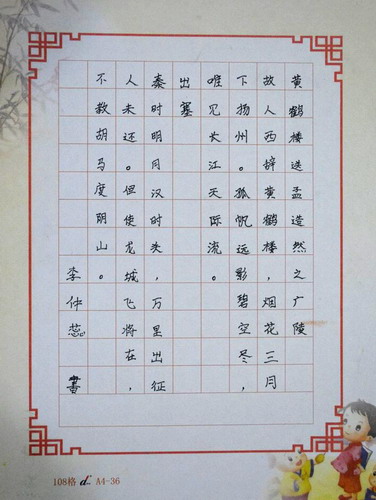 黄鹤楼送孟造然之广陵
故人西辞黄鹤楼，烟花三月
下扬州。孤帆远影碧空尽，
唯见长江天际流。
出塞
秦时明月汉时头，万里出征
人未还。但使龙城飞将在，
不教胡马度阴山。
李仲蕊 書
108格 A4-36